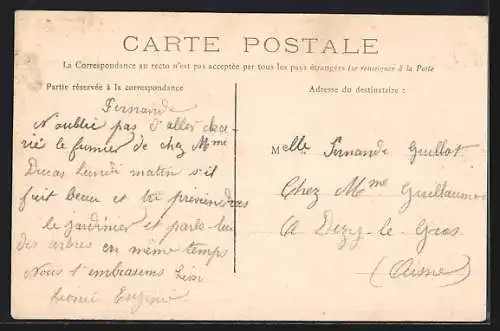 CARTE POSTALE
La Correspondance au recto n'est pas acceptée par tous les pays étrangers (se renseigner à la Poste
Partie réservée à la correspondance
Adresse du destinataire :
Fernande
N'oublie pas d'aller cha
rier le fumier de chez Mme
Ducas lundi matin s'il
fait beau et tu préviendras
le jardinier et parle-lui
des arbres en même temps
Nous t'embrassons
Léonie Eugénie
Melle Fernande Guillot
Chez Mme Guillaume
A Dizy-le-Gros
(Aisne)